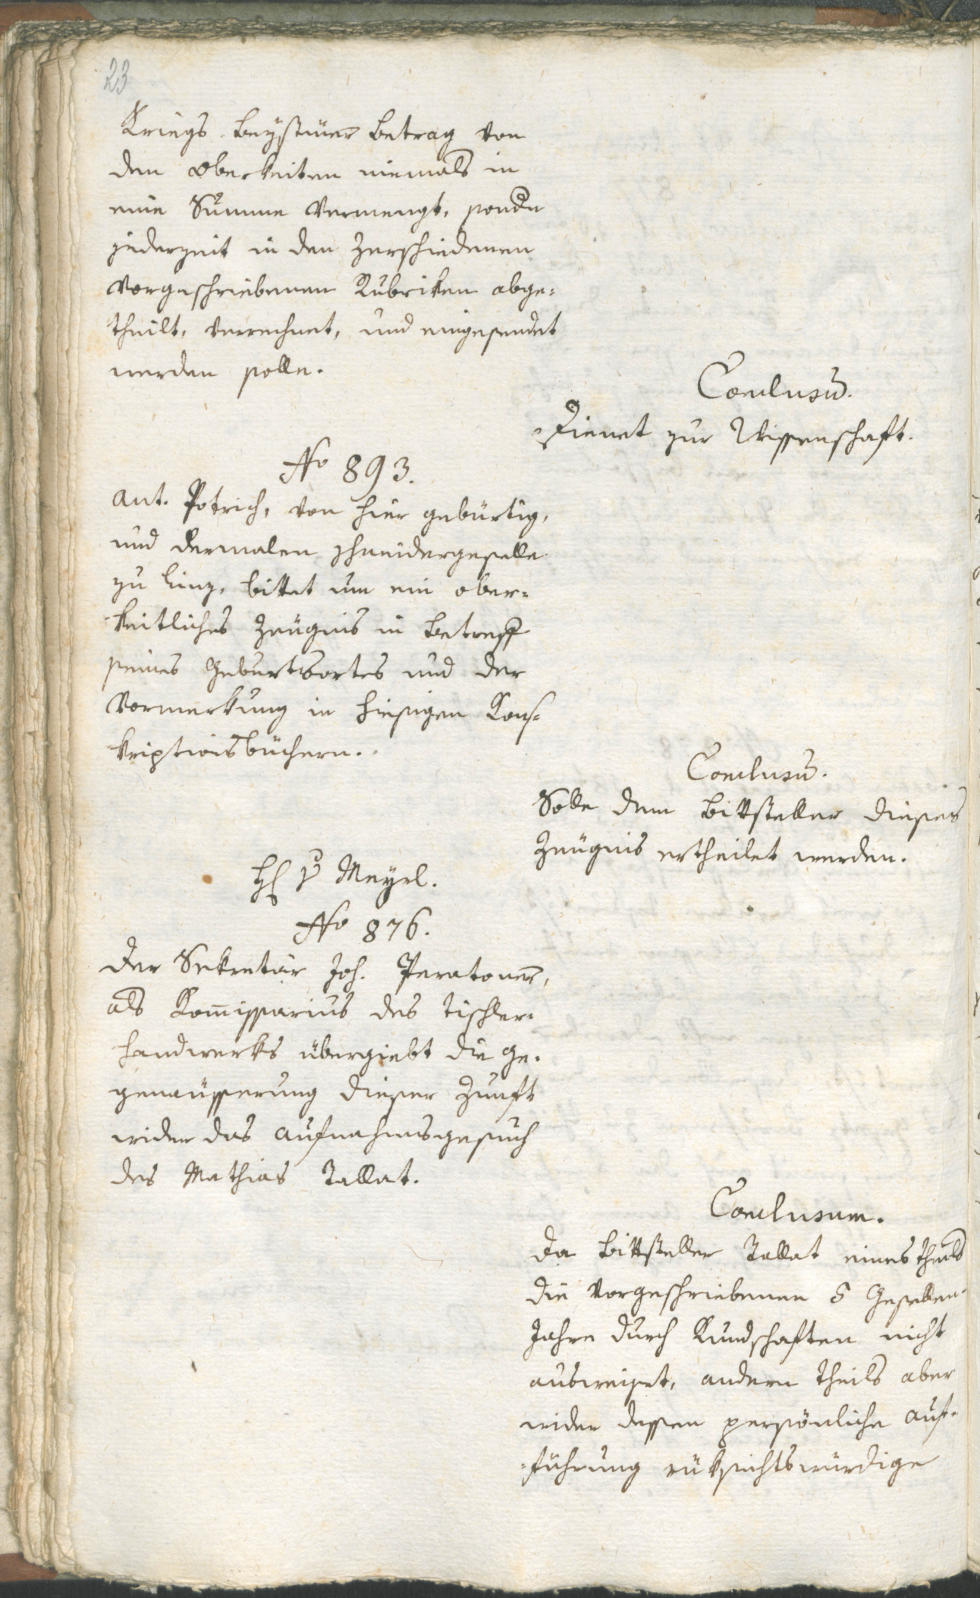 23
Kriegs Beysteuer Betrag von
den Oberkeiten niemals in
eine Summe vermengt, sonde
jederzeit in den zerschiedenen
vorgeschriebenen Rubriken abge¬
theilt, verrechnet, und eingesendet
werden solle.
Conclusū.
Dienet zur Wissenschaft.
No 893.
Ant. Potrich, von hier gebürtig,
und dermalen Schneidergeselle
zu Linz, bittet um ein ober¬
keitliches Zeügnis in Betreff
seines Geburtsortes und der
Vormerkung in hiesigen Kons¬
kriptionsbüchern.
Conclusū.
Solle dem Bittsteller dieses
Zeügnis ertheilet werden.
H v Meyrl.
No 876.
Der Sekretär Joh. Peratoner,
als Kom̅issarius des Tischler¬
handwerks übergiebt die Ge¬
genäusserung dieser Zunft
wider das Aufnahmsgesuch
des Mathias Tallat.
Conclusum.
Da Bittsteller Tallat eines theils
die vorgeschriebenen 8 Gesellen¬
Jahre durch Kundschaften nicht
ausweiset, andern theils aber
wider dessen persönliche Auf¬
führung rüksichtswürdige